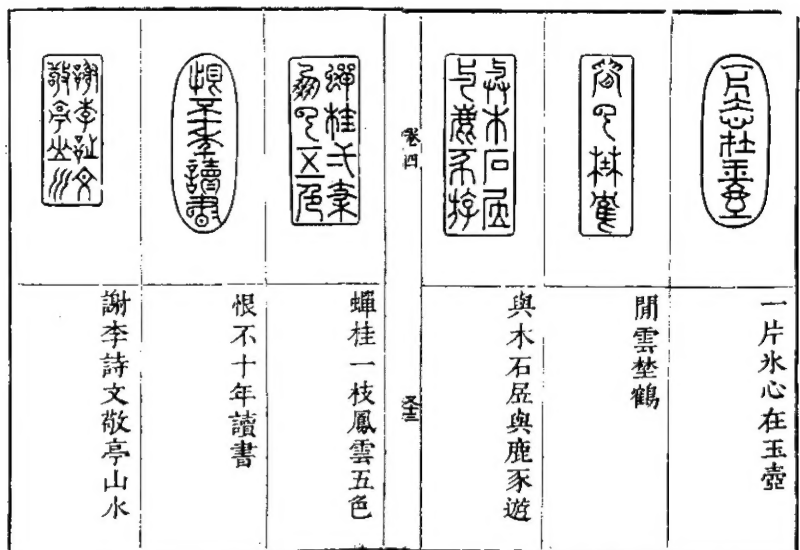 一片氷心在玉壺
閒雲埜鶴
與木石居與鹿豕遊
卷四
蟬桂一枝鳳雲五色
恨不十年讀書
謝李詩文敬亭山水